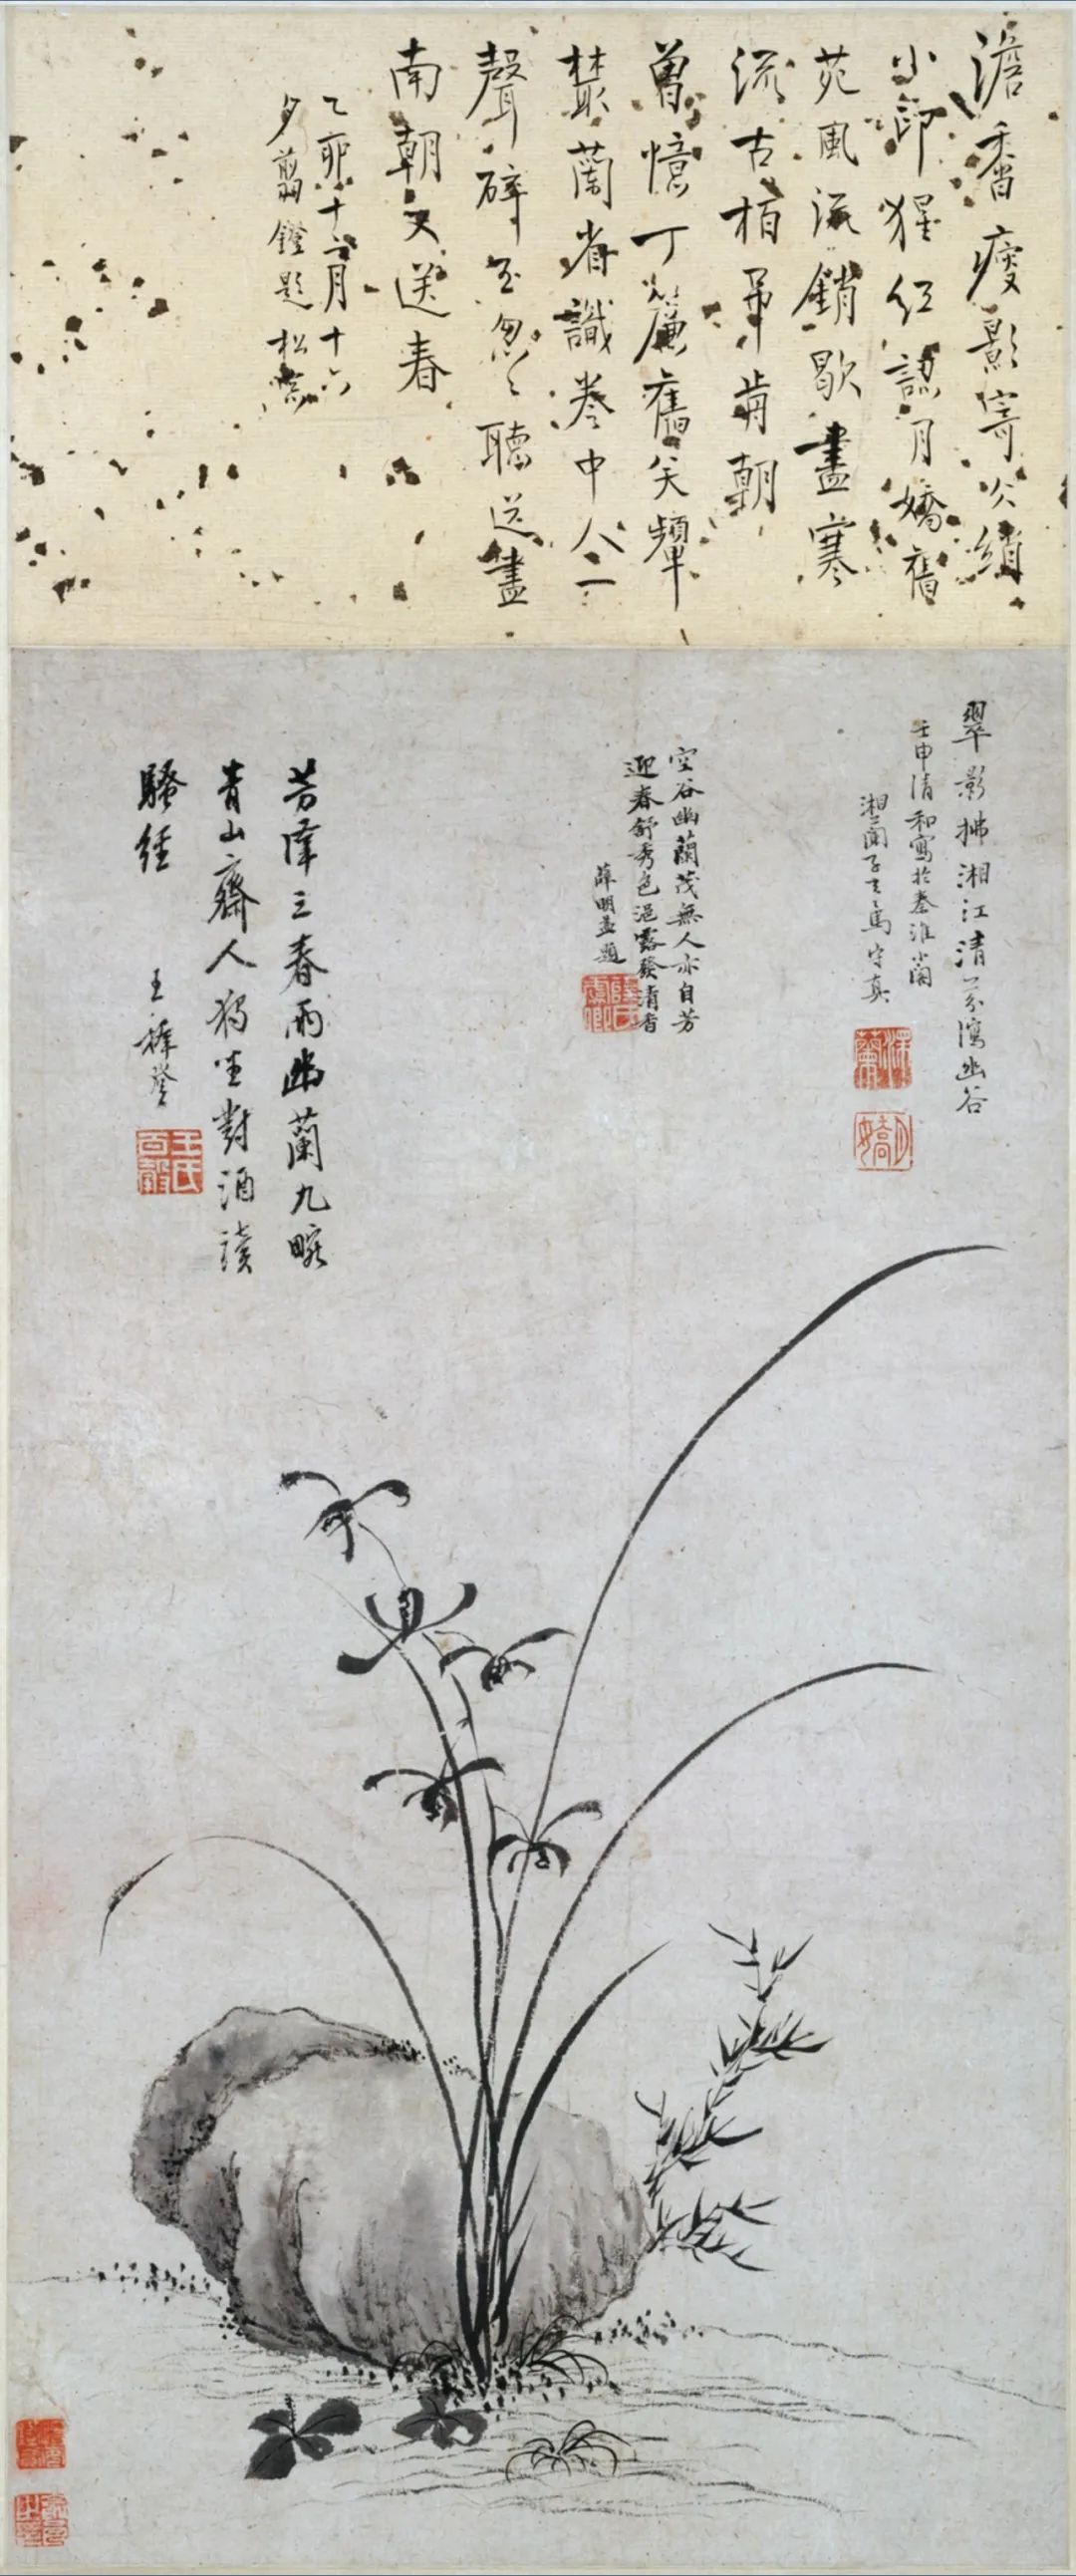 澹香瘦影寄冰綃
小印猩紅認月嬌舊
苑風流銷歇盡寒
流古柏弔前朝
曾憶丁簾舊笑顰
叢蘭省識卷中人一
聲碎玉匆匆聽送盡
南朝又送春
乙卯十二月十六
夕翦鐙題 松
翠影拂湘江清芬瀉幽谷
壬申清和寫於秦淮小閣
湘蘭子馬守真
空谷幽蘭茂無人亦自芳
迎春舒秀色浥露發清香
薛明益題
芳澤三春雨幽蘭九畹
青山齋人獨坐對酒讀
騷經
王穉登
王氏百穀
月嬌